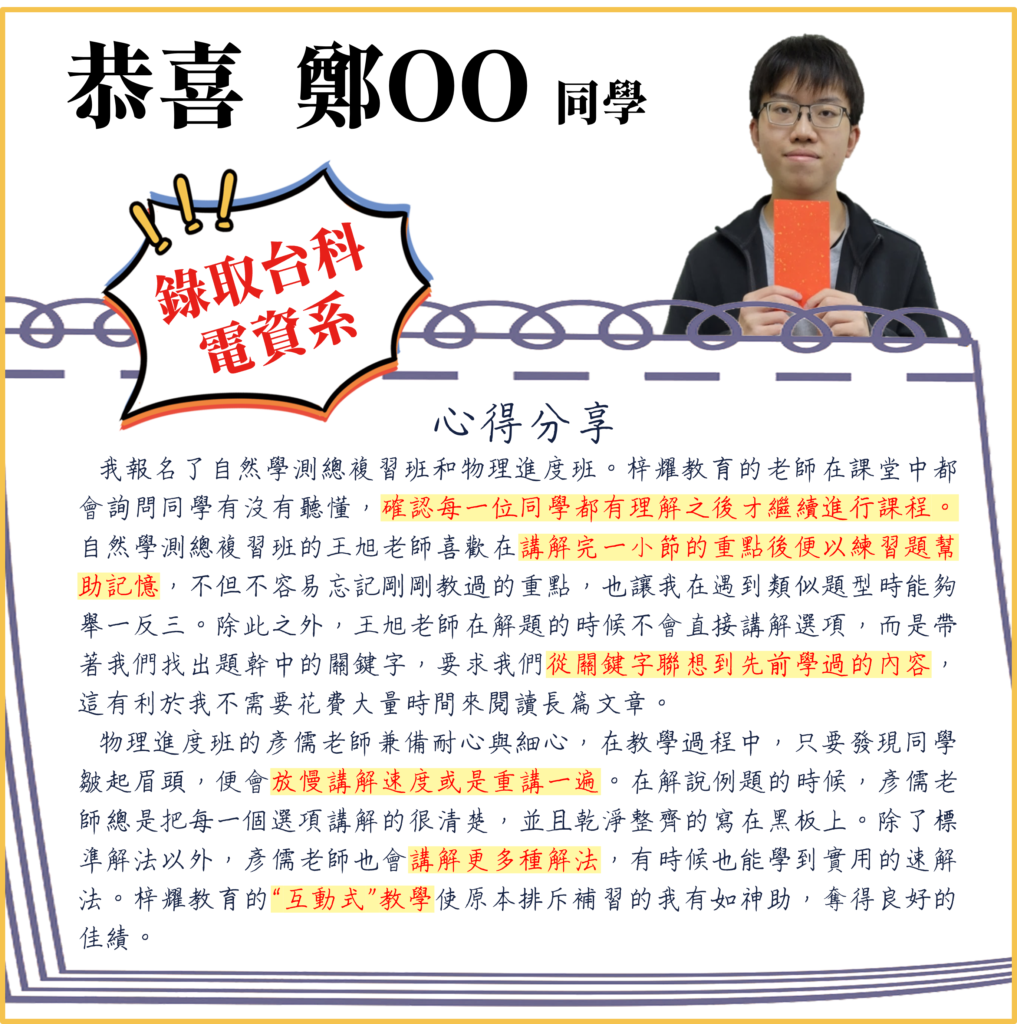 恭喜 鄭OO 同學
錄取台科
電資系
心得分享
我報名了自然學測總複習班和物理進度班。梓耀教育的老師在課堂中都
會詢問同學有沒有聽懂，確認每一位同學都有理解之後才繼續進行課程。
自然學測總複習班的王旭老師喜歡在講解完一小節的重點後便以練習題幫
助記憶，不但不容易忘記剛剛教過的重點，也讓我在遇到類似題型時能夠
舉一反三。除此之外，王旭老師在解題的時候不會直接講解選項，而是帶
著我們找出題幹中的關鍵字，要求我們從關鍵字聯想到先前學過的內容，
這有利於我不需要花費大量時間來閱讀長篇文章。
物理進度班的彥儒老師兼備耐心與細心，在教學過程中，只要發現同學
皺起眉頭，便會放慢講解速度或是重講一遍。在解說例題的時候，彥儒老
師總是把每一個選項講解的很清楚，並且乾淨整齊的寫在黑板上。除了標
準解法以外，彥儒老師也會講解更多種解法，有時候也能學到實用的速解
法。梓耀教育的“互動式”教學使原本排斥補習的我有如神助，奪得良好的
佳績。